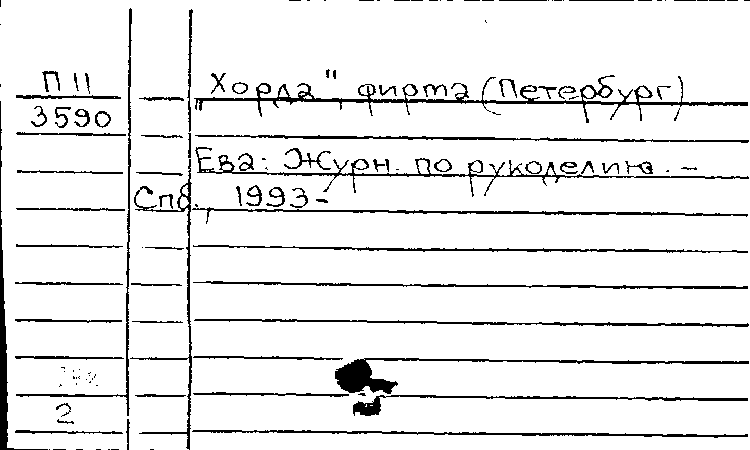 П 11
„Хорда", фирма (Петербург)
3590
Ева: Журн. по рукоделию. –
Спб., 1993-
2